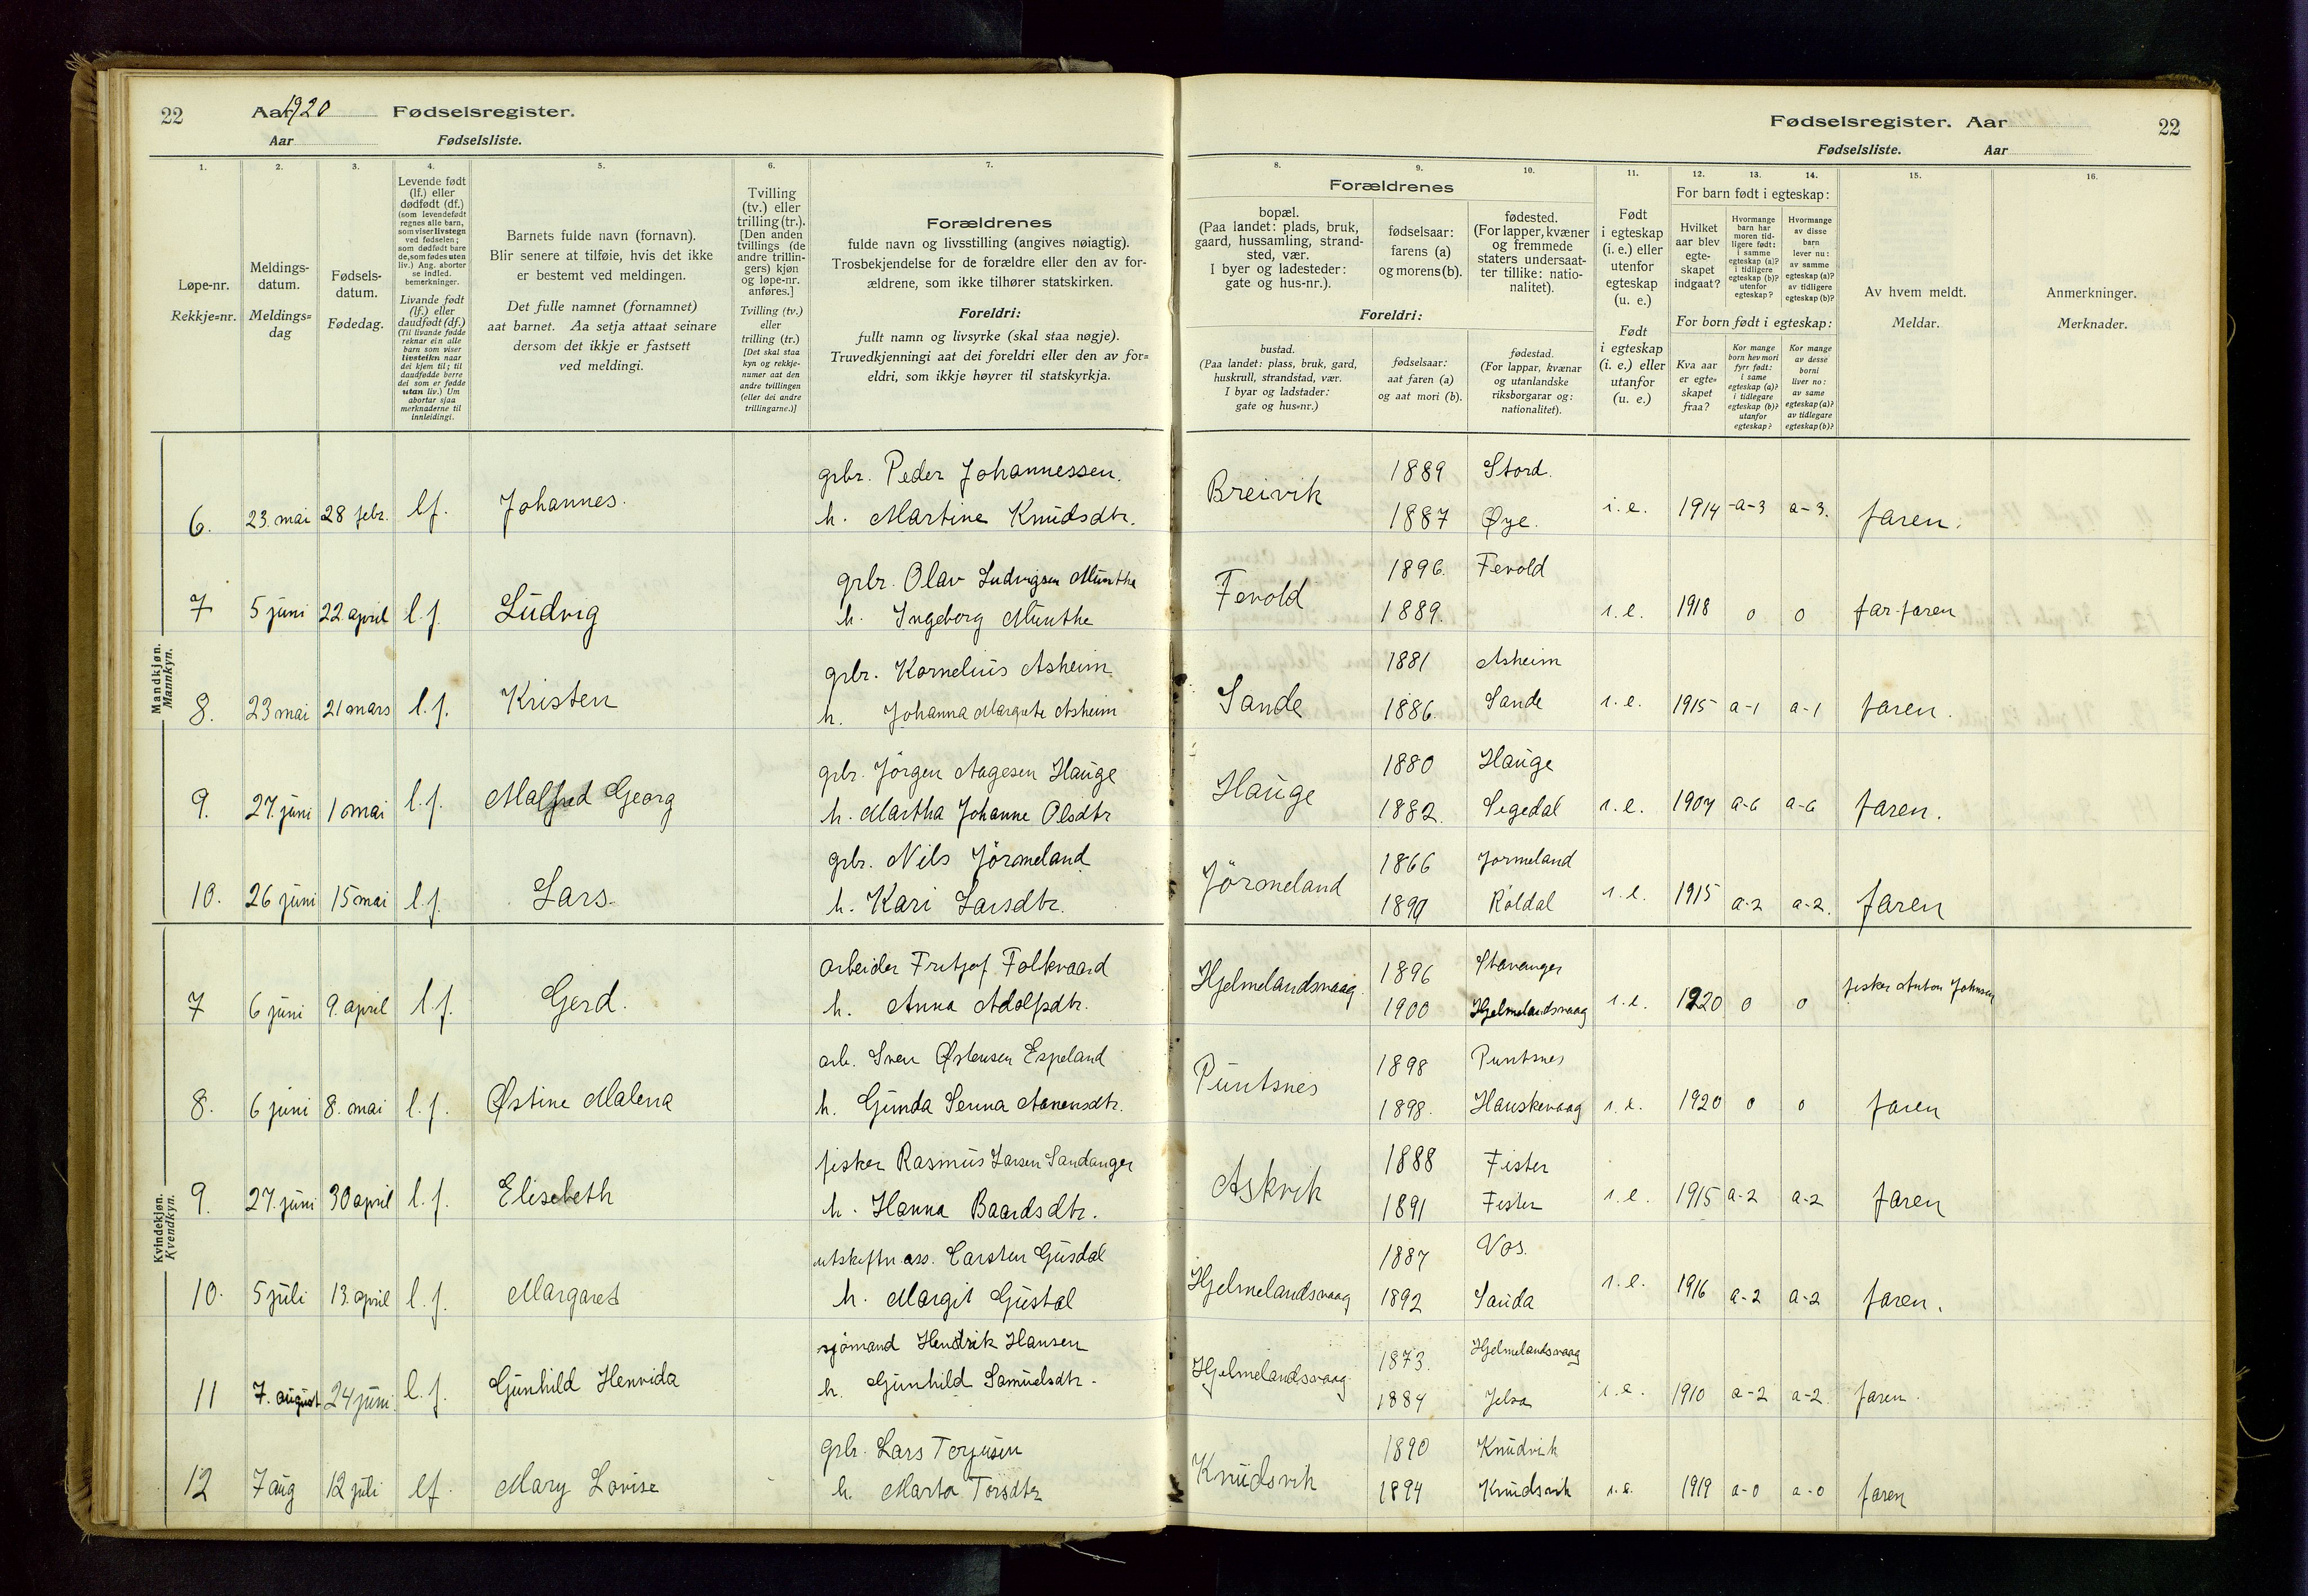 22 Aar 1920 Fødselsregister.
Aar Fødselsliste.
1. 2. 3. 4. 5. 6. 7.
Løpe-nr.
Rekkje=nr.
Meldings-
datum.
Meldings=
dag
Fødsels-
datum.
Fødedag.
Levende født
(lf.) eller
dødfødt (df.)
(som levendefødt
regnes alle barn,
som viser livstegn
ved fødselen;
som dødfødt bare
de, som fødes uten
liv.) Ang. aborter
se indled.
bemerkninger.
Livande født
(lf.) eller
daudfødt (df.)
(Til livande fødde
reknar ein alle
barn som viser
livsteikn naar
dei kjem til; til
daudfødde berre
dei som er fødde
utan liv.) Um
abortar sjaa
merknaderne til
innleidingi.
Barnets fulde navn (fornavn).
Blir senere at tilføie, hvis det ikke
er bestemt ved meldingen.
Det fulle namnet (fornamnet)
aat barnet. Aa setja attaat seinare
dersom det ikkje er fastsett
ved meldingi.
Tvilling
(tv.) eller
trilling (tr.).
[Den anden
tvillings (de
andre trillin-
gers) kjøn
og løpe-nr.
anføres.]
Tvilling (tv.)
eller
trilling (tr.)
[Det skal staa
kyn og rekkje-
numer aat den
andre tvillingen
(eller dei andre
trillingarne.)]
Forældrenes
fulde navn og livsstilling (angives nøiagtig).
Trosbekjendelse for de forældre eller den av for-
ældrene, som ikke tilhører statskirken.
Foreldri:
fullt namn og livsyrke (skal staa nøgje).
Truvedkjenningi aat dei foreldri eller den av for=
eldri, som ikkje høyrer til statskyrkja.
Mandkjøn.
Mannkyn.
6. 23. mai 28 febr. lf. Johannes. grbr. Peder Johannessen.
h. Martine Knudsdtr.
7 5 juni 22. april l.f. Ludvig grbr. Olav Ludvigsen Munthe
h. Ingeborg Munthe
8. 23 mai 21 mars l.f. Kristen grbr. Kornelius Asheim
h. Johanna Margrete Asheim
9. 27. juni 1 mai l.f. Malfred Georg grbr. Jörgen Aagesen Hauge
h. Martha Johanne Olsdtr
10. 26 juni 15 mai l.f. Lars. grbr. Nils Jörmeland
h. Kari Larsdtr.
Kvindekjøn.
Kvendkyn.
7 6 juni 9. april l.f. Gerd. arbeider Fritjof Folkvaard
h. Anna Adolfsdtr.
8. 6 juni 8. mai l.f. Østine Malena arb. Sven Østensen Espeland
h. Gunda Serina Aanensdtr.
9. 27. juni 30 april l.f. Elisebeth fisker Rasmus Larsen Sandanger
h. Hanna Baardsdtr.
10. 5 juli 13. april l.f. Margaret utskiftn. ass. Carsten Gusdal
h. Margit Gustal
11 7. august 24 juni. l.f. Gunhild Henvida sjömand Hendrik Hansen
h. Gunhild Samuelsdtr.
12 7 aug 12 juli lf. Mary Lovise grbr. Lars Torjusen
h. Marta Torsdtr
Fødselsregister. Aar 22
Fødselsliste. Aar
8. 9. 10. 11. 12. 13. 14. 15. 16.
Forældrenes
bopæl.
(Paa landet: plads, bruk,
gaard, hussamling, strand-
sted, vær.
I byer og ladesteder:
gate og hus-nr.).
fødselsaar:
farens (a)
og morens (b).
fødested.
(For lapper, kvæner
og fremmede
staters undersaat-
ter tillike: natio-
nalitet).
Foreldri:
bustad.
(Paa landet: plass, bruk, gard,
huskrull, strandstad, vær.
I byar og ladstader:
gate og hus=nr.)
fødselsaar:
aat faren (a)
og aat mori (b).
fødestad.
(For lappar, kvænar
og utanlandske
riksborgarar og:
nationalitet).
Født
i egteskap
(i. e.) eller
utenfor
egteskap
(u. e.)
Født
i egteskap
(i. e.) eller
utanfor
(u. e.)
For barn født i egteskap:
Hvilket
aar blev
egte-
skapet
indgaat?
Hvormange
barn har
moren tid-
ligere født:
i samme
egteskap (a)?
i tidligere
egteskap (b)?
utenfor
egteskap?
Hvormange
av disse
barn
lever nu:
av samme
egteskap (a)?
av tidligere
egteskap (b)?
For born født i egteskap:
Kva aar
er egte=
skapet
fraa?
Kor mange
born hev mori
fyrr født:
i same
egteskap (a)?
i tidlegare
egteskap (b)?
utanfor
egteskap?
Kor mange
av desse
borni
liver no:
av same
egteskap (a)?
av tidlegare
egteskap (b)?
Av hvem meldt.
Meldar.
Anmerkninger.
Merknader.
Breivik 1889 Stord.
1887 Øye. i. e. 1914 -a-3 a-3. faren.
Fevold 1896. Fevold
1889. i. e. 1918 0 0 far-faren
Sande 1881 Asheim
1886. Sande i. e. 1915 a-1 a-1 faren.
Hauge 1880 Hauge
1882. Segedal i. e. 1907 a-6 a-6 faren.
Jörmeland 1866 Jormeland
1890 Röldal i. e. 1915 a-2 a-2. faren
Hjelmelandsvaag 1896 Stavanger
1900 Hjelmelandsvaag i. e. 1920 0 0 fisker Anton Johnsen
Puntsnes 1898 Puntsnes
1898. Hauskevaag i. e. 1920 0 0 faren
Askvik 1888 Fister
1891 Fister i. e. 1915 a-2 a-2 faren
Hjelmelandsvaag 1887 Vos.
1892 Sauda i. e. 1916 a-2 a-2 faren.
Hjelmelandsvaag 1873. Hjelmelandsvaag
1884 Jelsa i. e. 1910 a-2 a-2 faren.
Knudsvik 1890 Knudvik
1894 Knudsvik i. e. 1919 a-0 a-0 faren